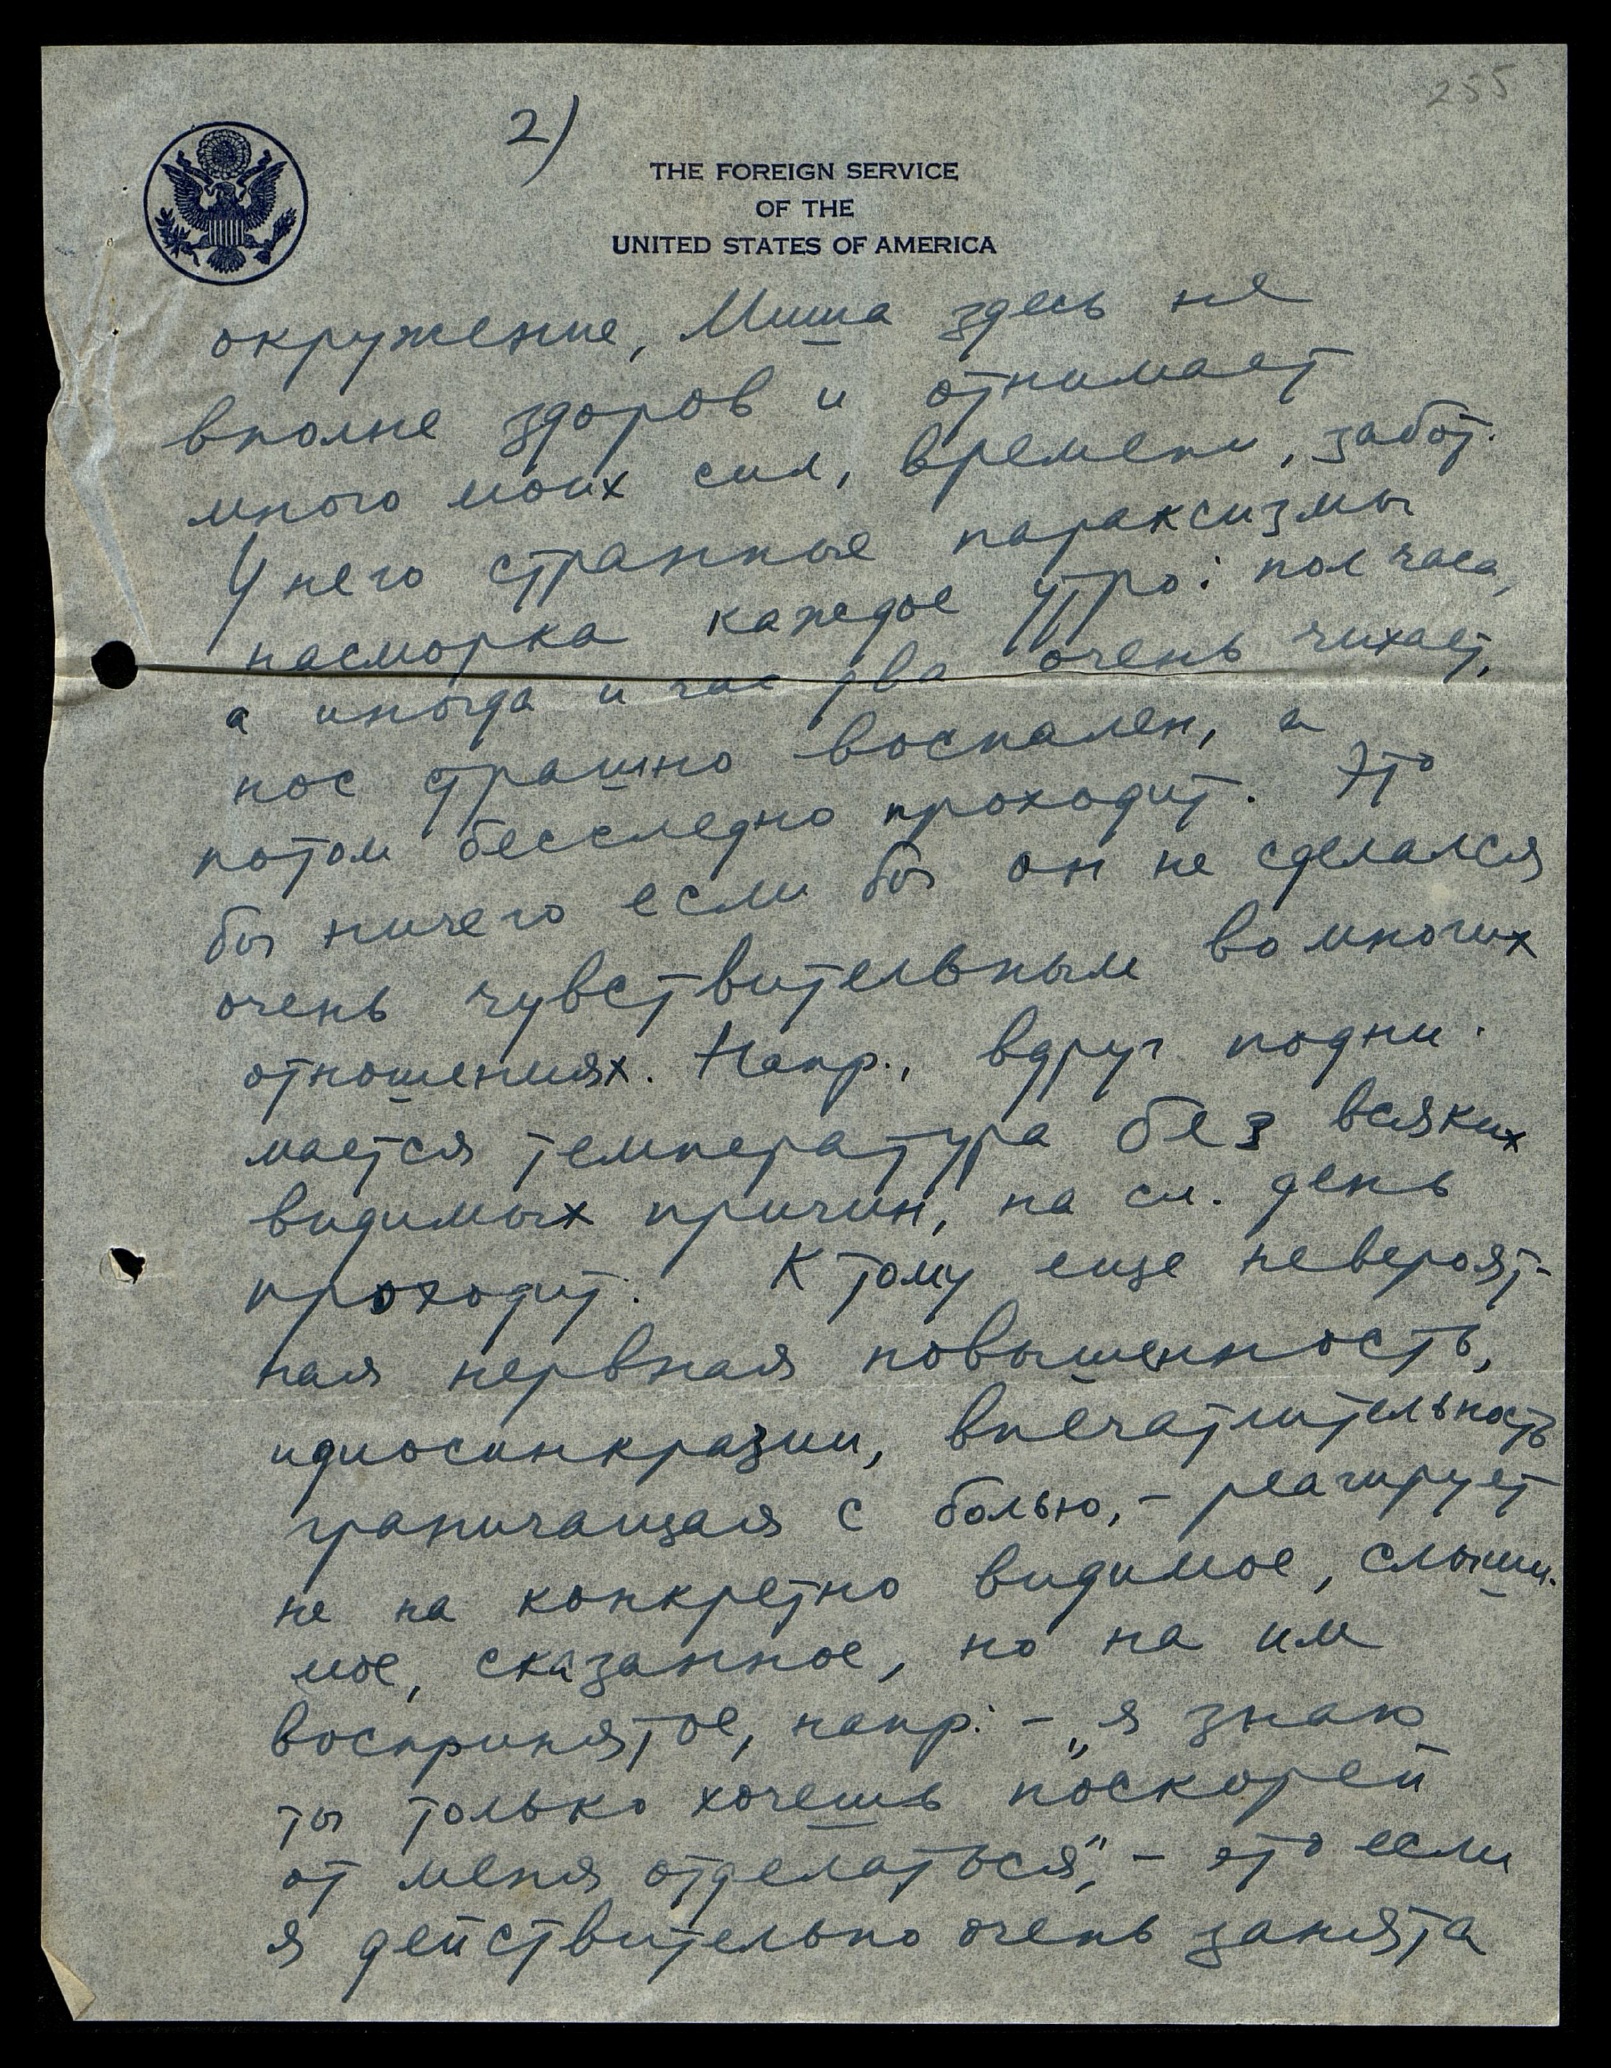 255
2)
THE FOREIGN SERVICE
OF THE
UNITED STATES OF AMERICA
окружение, Миша здесь не
вполне здоров и отнимает
много моих сил, времени, забот.
У него странные параксизмы
насморка каждое утро: пол часа,
а иногда и час два очень чихает,
нос страшно воспален, а
потом бесследно проходит. Это
бы ничего если бы он не сделался
очень чувствительным во многих
отношениях. Напр., вдруг подни-
мается температура без всяких
видимых причин, на сл. день
проходит. К тому еще невероят-
ная нервная повышенность,
идиосинкразии, впечатлительность
граничащая с болью, – реагирует
не на конкретно видимое, слыши-
мое, сказанное, но на им
воспринятое, напр: – „я знаю
ты только хочешь поскорей
от меня отделаться", – это если
я действительно очень занята